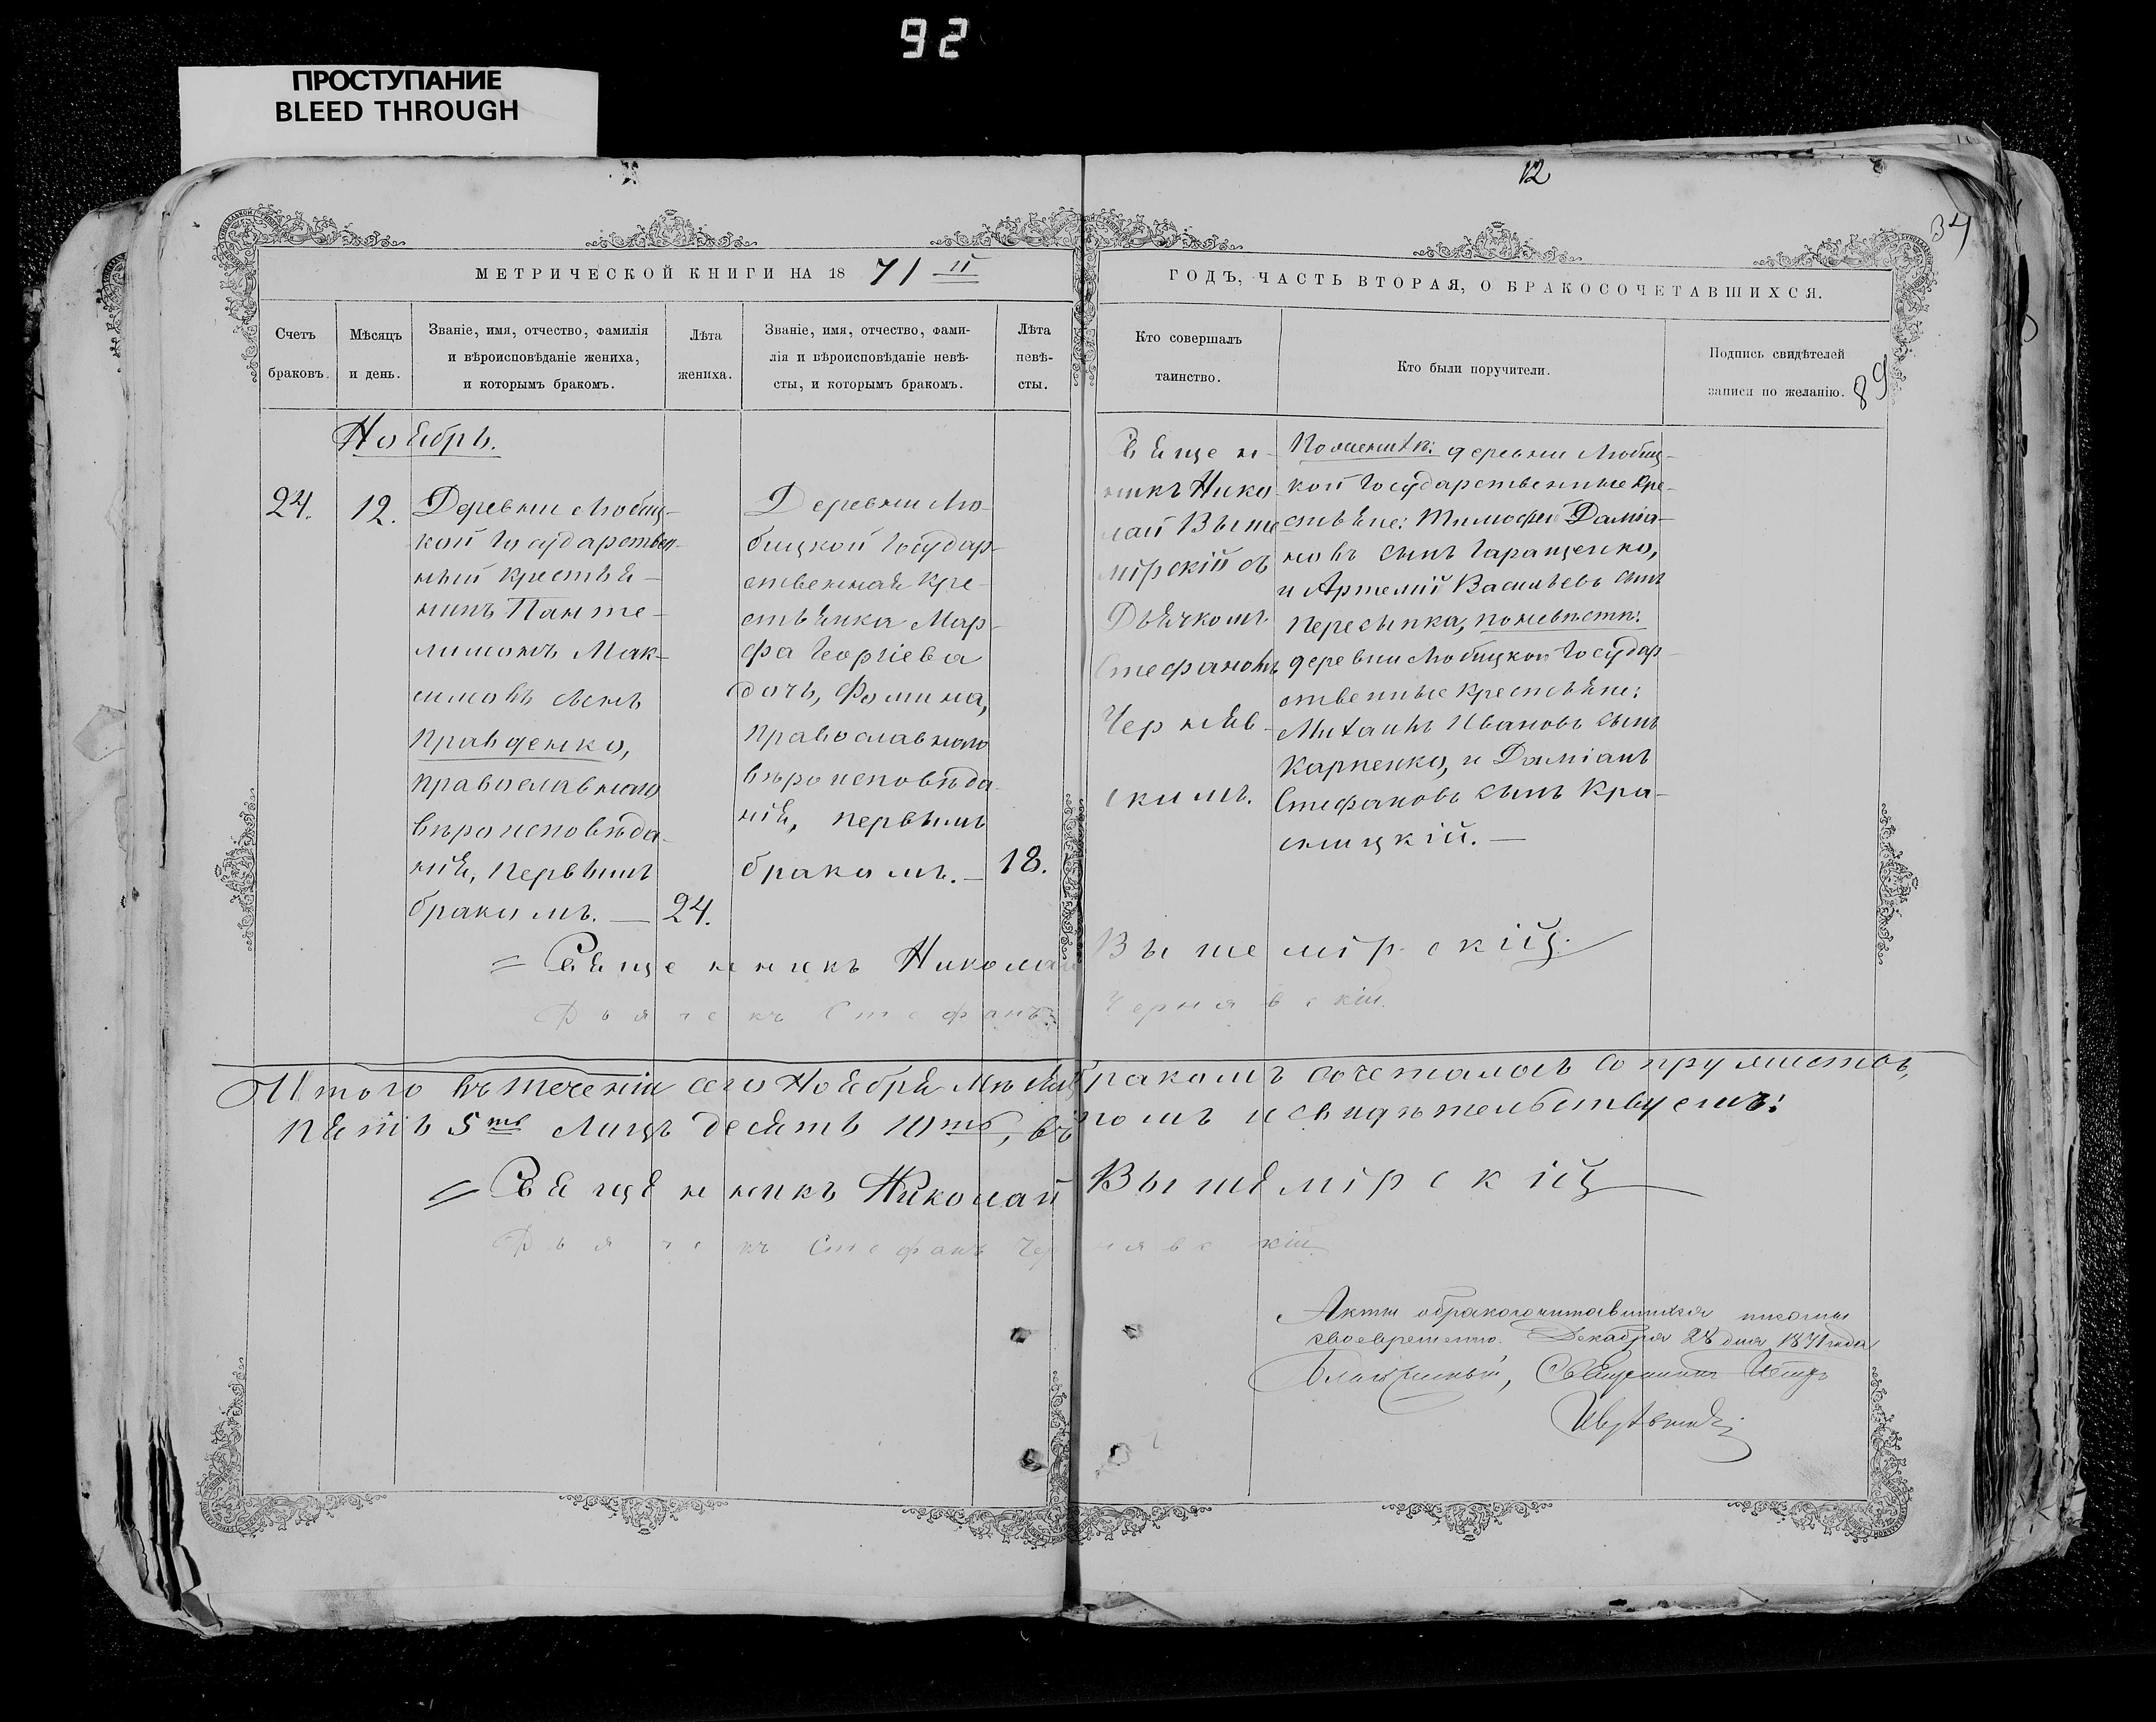 92
ПРОСТУПАНИЕ
BLEED THROUGH
12
34
89
МЕТРИЧЕСКОЙ КНИГИ НА 1871 й
ГОДЪ, ЧАСТЬ ВТОРАЯ, О БРАКОСОЧЕТАВШИХСЯ.
Счетъ
браковъ.
Мѣсяцъ
и день.
Званіе, имя, отчество, фамилія
и вѣроисповѣданіе жениха,
и которымъ бракомъ.
Лѣта
жениха.
Званіе, имя, отчество, фами-
лія и вѣроисповѣданіе невѣ-
сты, и которымъ бракомъ.
Лѣта
невѣ-
сты.
Кто совершалъ
таинство.
Кто были поручители.
Подпись свидѣтелей
записи по желанію.
Ноябрь.
24.
12.
Деревни Любиц-
кой Государствен-
ный крестья-
нинъ Панте-
лимонъ Мак-
симовъ сынъ
Правденко,
православнаго
вѣроисповѣда-
нія, первымъ
бракомъ. —
24.
Деревни Лю-
бицкой Государ-
ственная кре-
стьянка Мар-
фа Георгіева
дочь, Фомина,
православнаго
вѣроисповѣда-
нія, первымъ
бракомъ. —
18.
Священ-
никъ Нико-
лай Выше-
мірскій съ
Дьячкомъ
Стефаномъ
Черняв-
скимъ.
По женихѣ: деревни Любиц-
кой Государственные кре-
стьяне: Тимофей Даміа-
новъ сынъ Гаращенко,
и Артемій Васильевъ сынъ
Пересыпка, по невѣстѣ:
деревни Любицкой Государ-
ственные крестьяне:
Михаилъ Ивановъ сынъ
Карпенко, и Даміанъ
Стефановъ сынъ Кра-
сницкій. —
= Священникъ Николай Вышемірскій.
Дьячекъ Стефанъ Чернявскій.
Итого въ теченіи сего Ноября Мѣсяца бракомъ сочеталось супружествъ,
пять 5ть лицъ десять 10ть, въ томъ и свидѣтельствуемъ:
= Священникъ Николай Вышемірскій
Дьячекъ Стефанъ Чернявскій.
Акты о бракосочетавшихся писаны
своевременно. Декабря 28 дня 1871 года
Благочинный, Священникъ Петръ